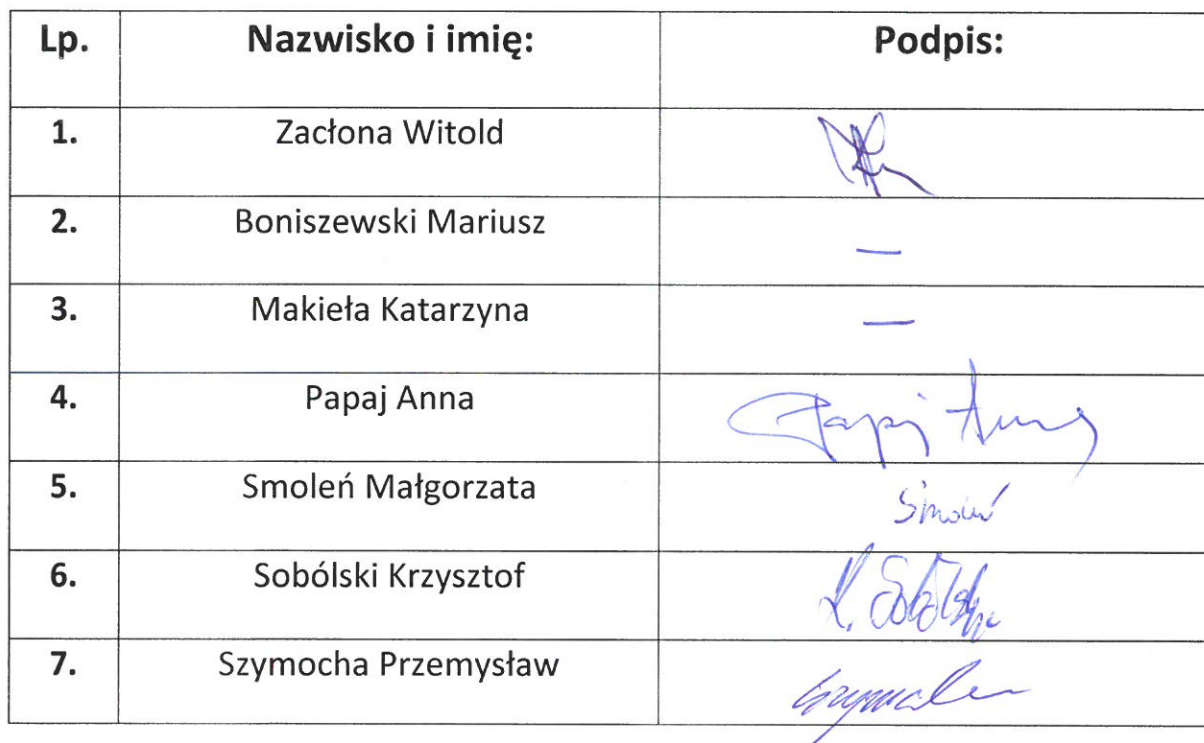 Lp. Nazwisko i imię: Podpis:
1. Zacłona Witold
2. Boniszewski Mariusz —
3. Makieła Katarzyna —
4. Papaj Anna Papaj Anna
5. Smoleń Małgorzata Smoleń
6. Sobólski Krzysztof K. Sobólski
7. Szymocha Przemysław